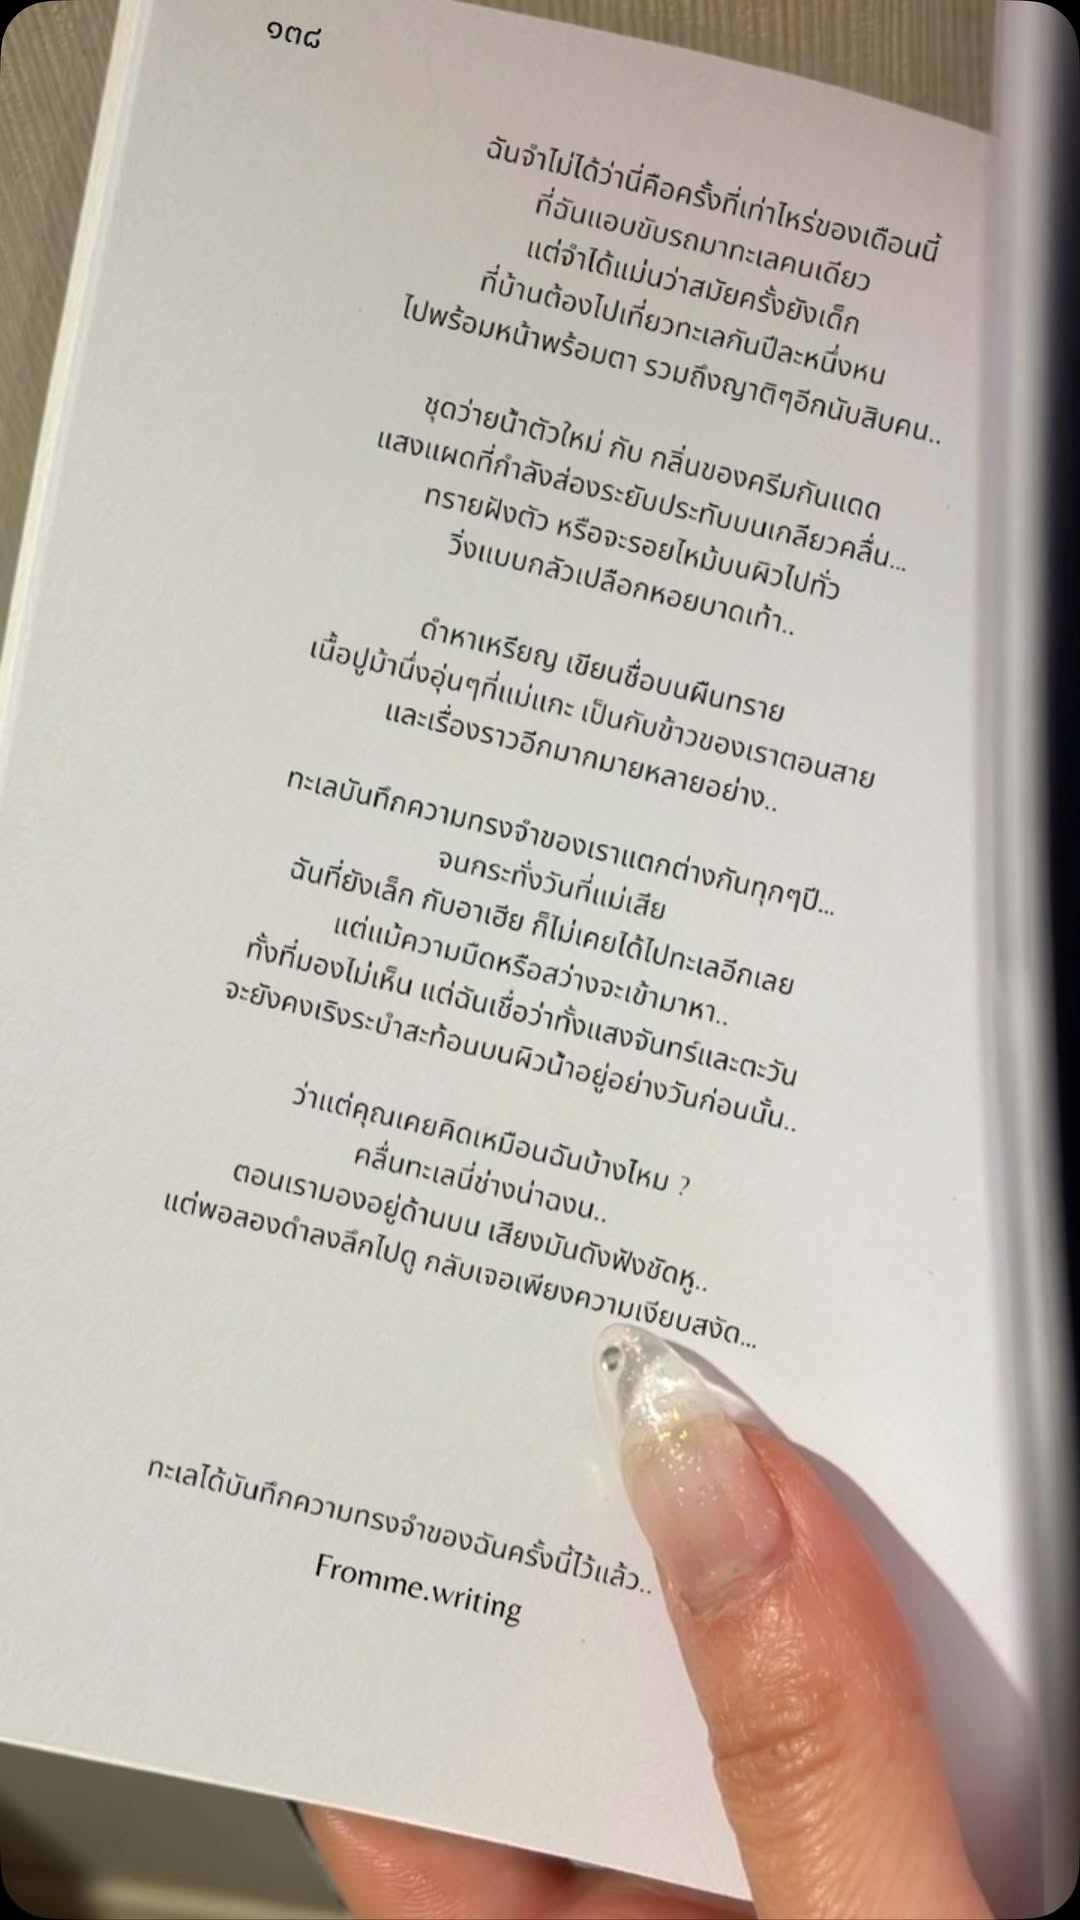 ๑๓๘
ฉันจำไม่ได้ว่านี่คือครั้งที่เท่าไหร่ของเดือนนี้
ที่ฉันแอบขับรถมาทะเลคนเดียว
แต่จำได้แม่นว่าสมัยครั้งยังเด็ก
ที่บ้านต้องไปเที่ยวทะเลกันปีละหนึ่งหน
ไปพร้อมหน้าพร้อมตา รวมถึงญาติๆอีกนับสิบคน..
ชุดว่ายน้ำตัวใหม่ กับ กลิ่นของครีมกันแดด
แสงแผดที่กำลังส่องระยับประทับบนเกลียวคลื่น...
ทรายฝังตัว หรือจะรอยไหม้บนผิวไปทั่ว
วิ่งแบบกลัวเปลือกหอยบาดเท้า..
ดำหาเหรียญ เขียนชื่อบนผืนทราย
เนื้อปูม้านึ่งอุ่นๆที่แม่แกะ เป็นกับข้าวของเราตอนสาย
และเรื่องราวอีกมากมายหลายอย่าง..
ทะเลบันทึกความทรงจำของเราแตกต่างกันทุกๆปี...
จนกระทั่งวันที่แม่เสีย
ฉันที่ยังเล็ก กับอาเฮีย ก็ไม่เคยได้ไปทะเลอีกเลย
แต่แม้ความมืดหรือสว่างจะเข้ามาหา..
ทั้งที่มองไม่เห็น แต่ฉันเชื่อว่าทั้งแสงจันทร์และตะวัน
จะยังคงเริงระบำสะท้อนบนผิวน้ำอยู่อย่างวันก่อนนั้น..
ว่าแต่คุณเคยคิดเหมือนฉันบ้างไหม ?
คลื่นทะเลนี่ช่างน่าฉงน..
ตอนเรามองอยู่ด้านบน เสียงมันดังฟังชัดหู..
แต่พอลองดำลงลึกไปดู กลับเจอเพียงความเงียบสงัด...
ทะเลได้บันทึกความทรงจำของฉันครั้งนี้ไว้แล้ว..
Fromme.writing